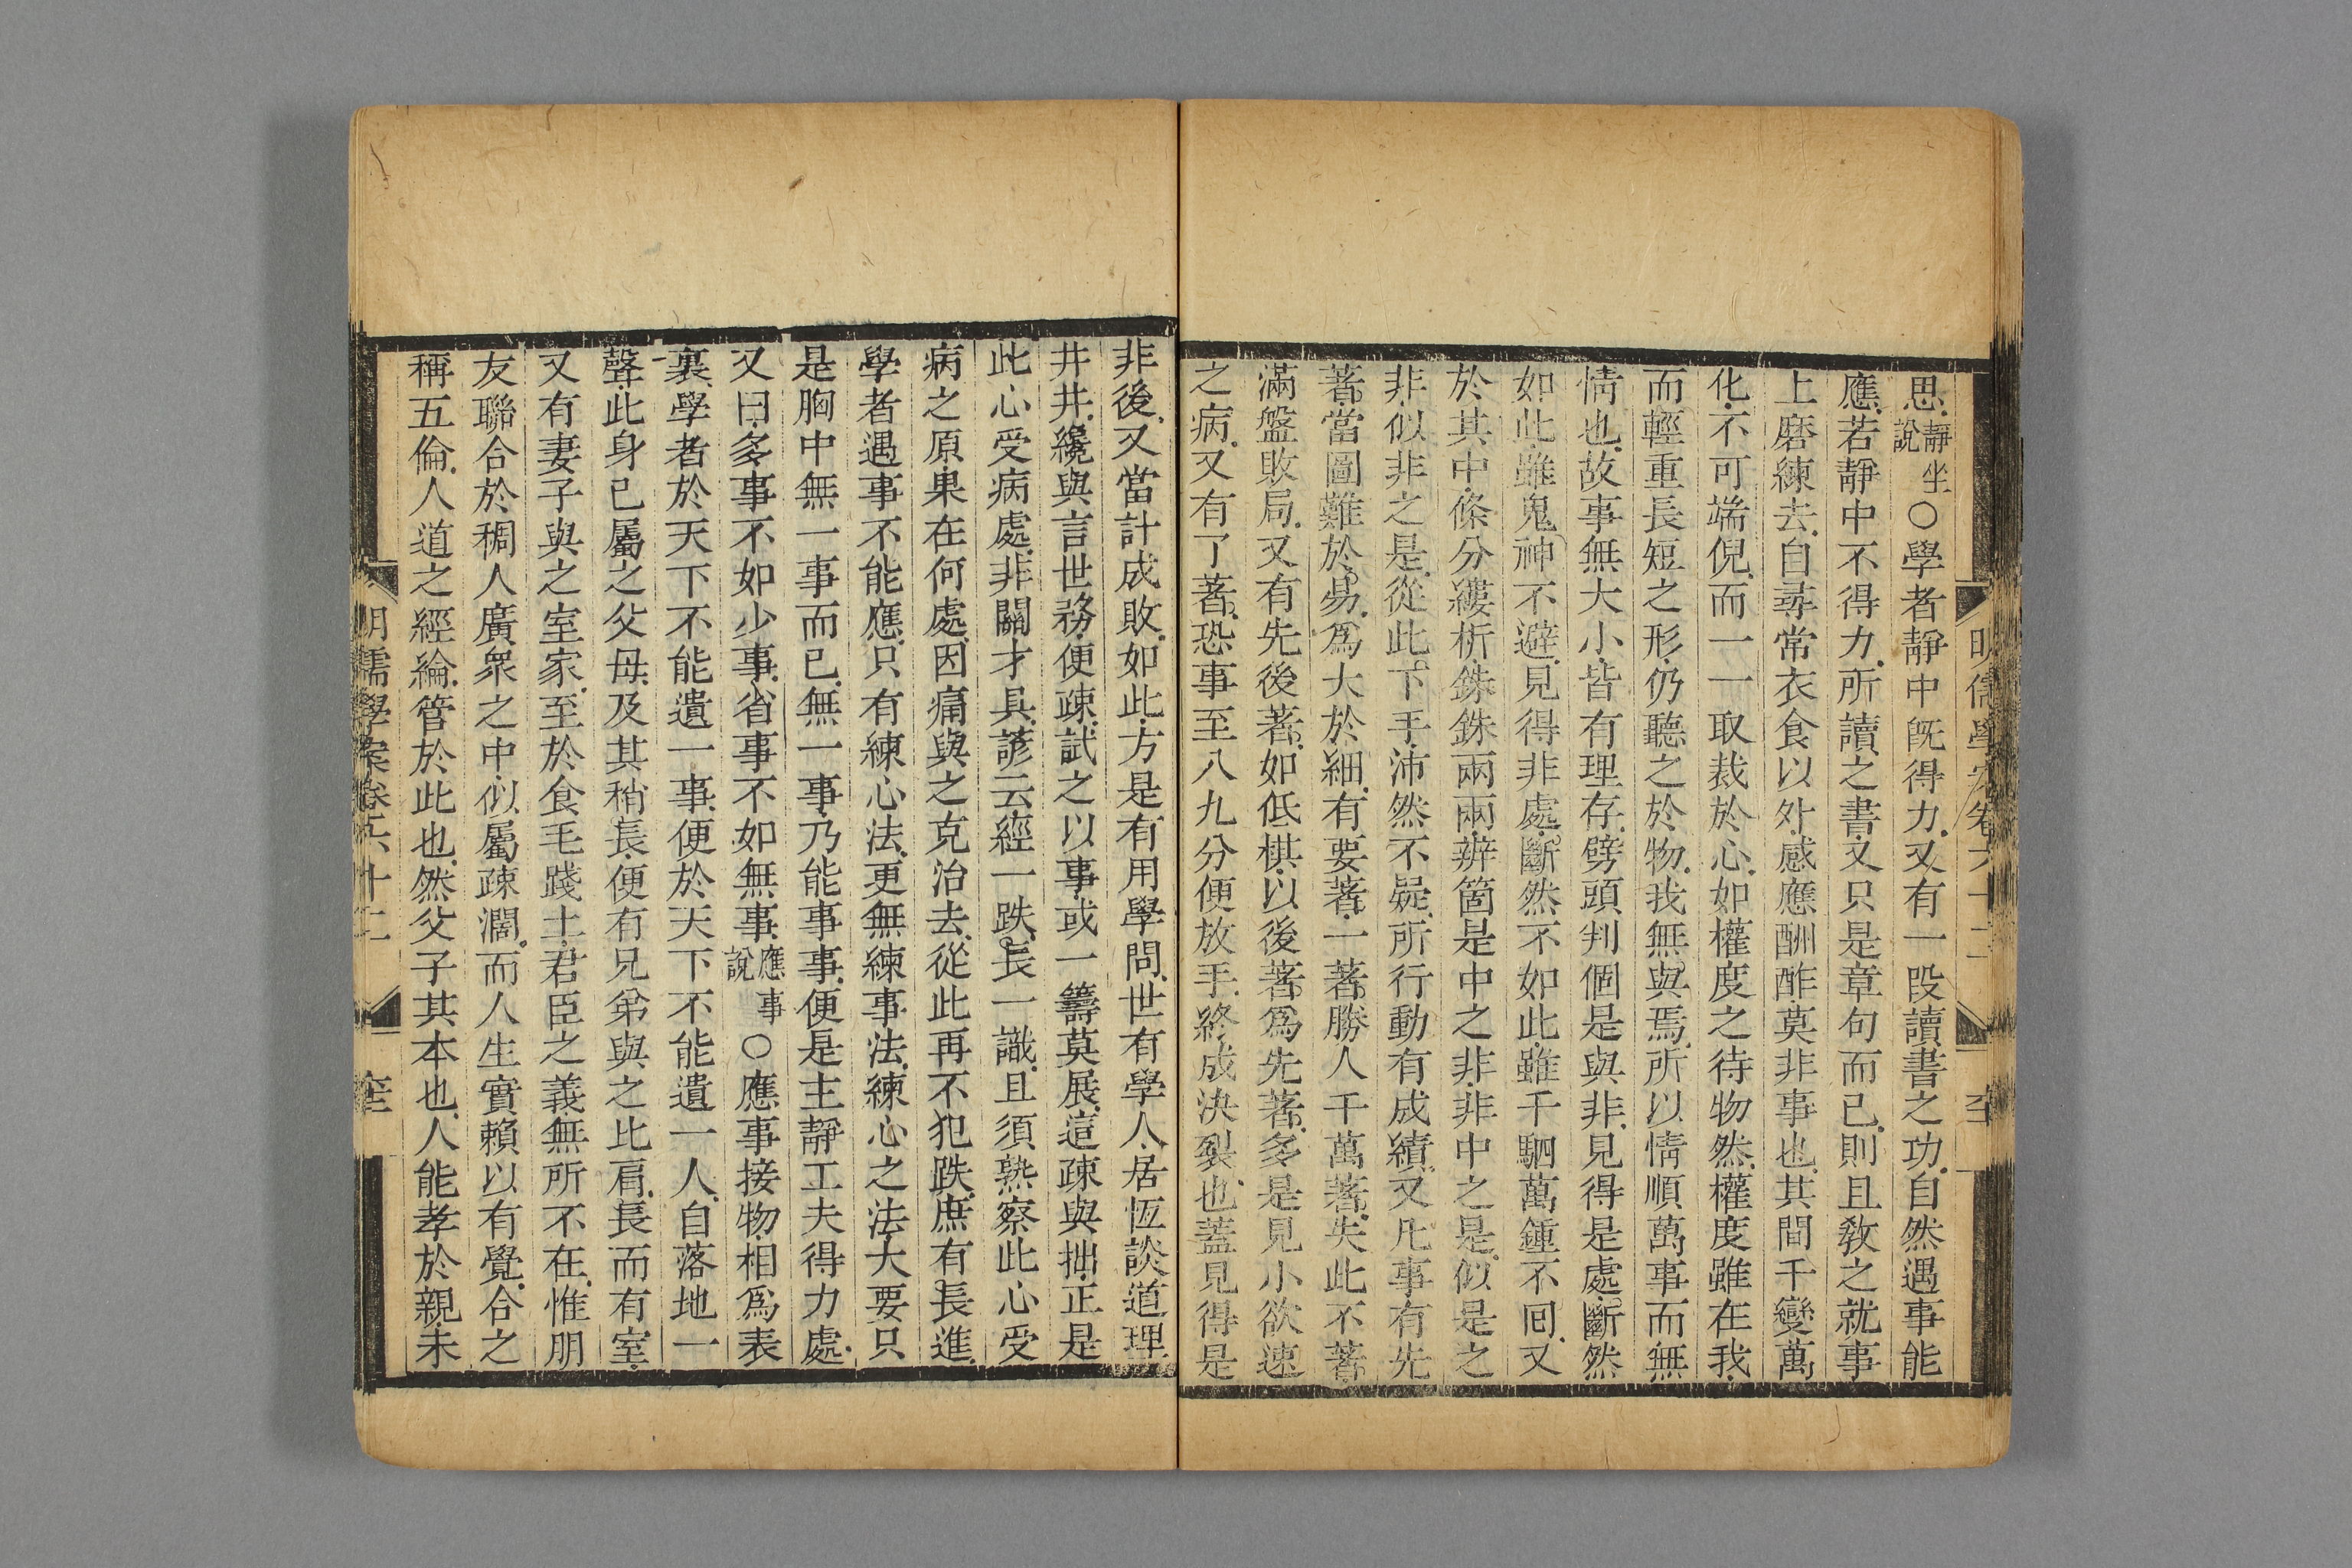 思靜坐說○學者靜中旣得力又有一段讀書之功自然遇事能
應若靜中不得力所讀之書又只是章句而已則且敎之就事
上磨練去自尋常衣食以外感應酬酢莫非事也其間千變萬
化不可端倪而一一取裁於心如權度之待物然權度雖在我
而輕重長短之形仍聽之於物我無與焉所以情順萬事而無
情也故事無大小皆有理存劈頭判個是與非見得是處斷然
如此雖鬼神不避見得非處斷然不如此雖千駟萬鍾不囘又
於其中條分縷析銖銖兩兩辨箇是中之非非中之是似是之
非似非之是從此下手沛然不疑所行動有成績又凡事有先
著當圖難於易爲大於細有要著一著勝人千萬著失此不著
滿盤敗局又有先後著如低棋以後著爲先著多是見小欲速
之病又有了著恐事至八九分便放手終成決裂也蓋見得是
非後又當計成敗如此方是有用學問世有學人居恆談道理
井井纔與言世務便疎試之以事或一籌莫展這疎與拙正是
此心受病處非關才具諺云經一跌長一識且須熟察此心受
病之原果在何處因痛與之克治去從此再不犯跌庶有長進
學者遇事不能應只有練心法更無練事法練心之法大要只
是胸中無一事而已無一事乃能事事便是主靜工夫得力處
又曰多事不如少事省事不如無事應事說○應事接物相爲表
裏學者於天下不能遺一事便於天下不能遺一人自落地一
聲此身已屬之父母及其稍長便有兄弟與之比肩長而有室
又有妻子與之室家至於食毛踐土君臣之義無所不在惟朋
友聯合於稠人廣衆之中似屬疎濶而人生實賴以有覺合之
稱五倫人道之經綸管於此也然父子其本也人能孝於親未
明儒學案卷六十二